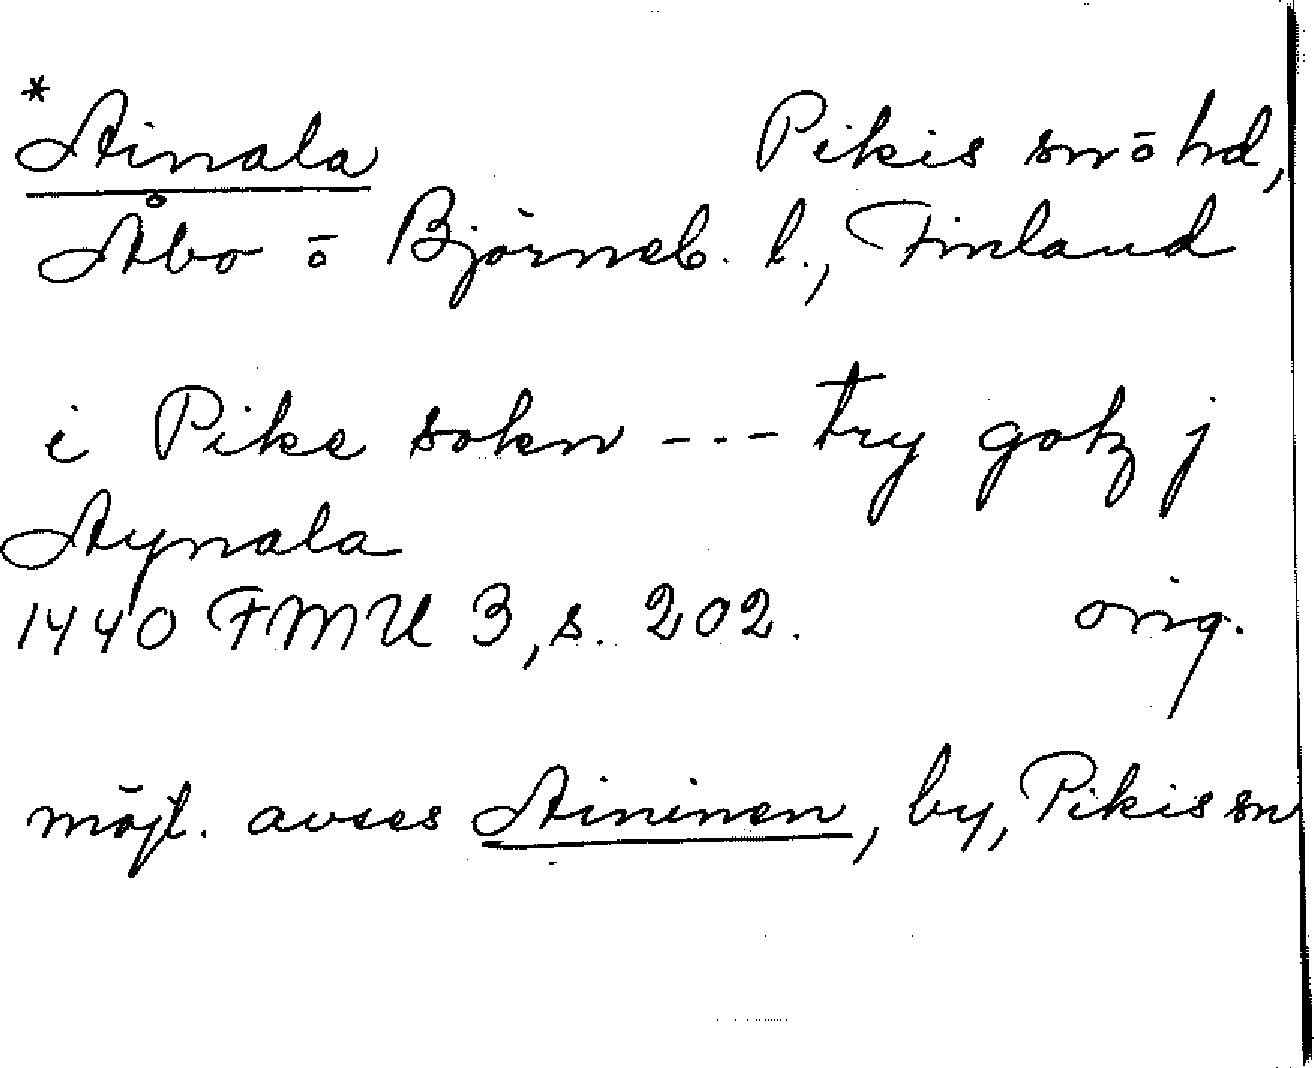 *
Ainala Pikis sn ō hd,
Åbo ō Björneb. l., Finland
i Pike sokn --- try gotz j
Aynala
1440 FMU 3, s. 202. orig.
möjl. avses Aininen, by, Pikis sn